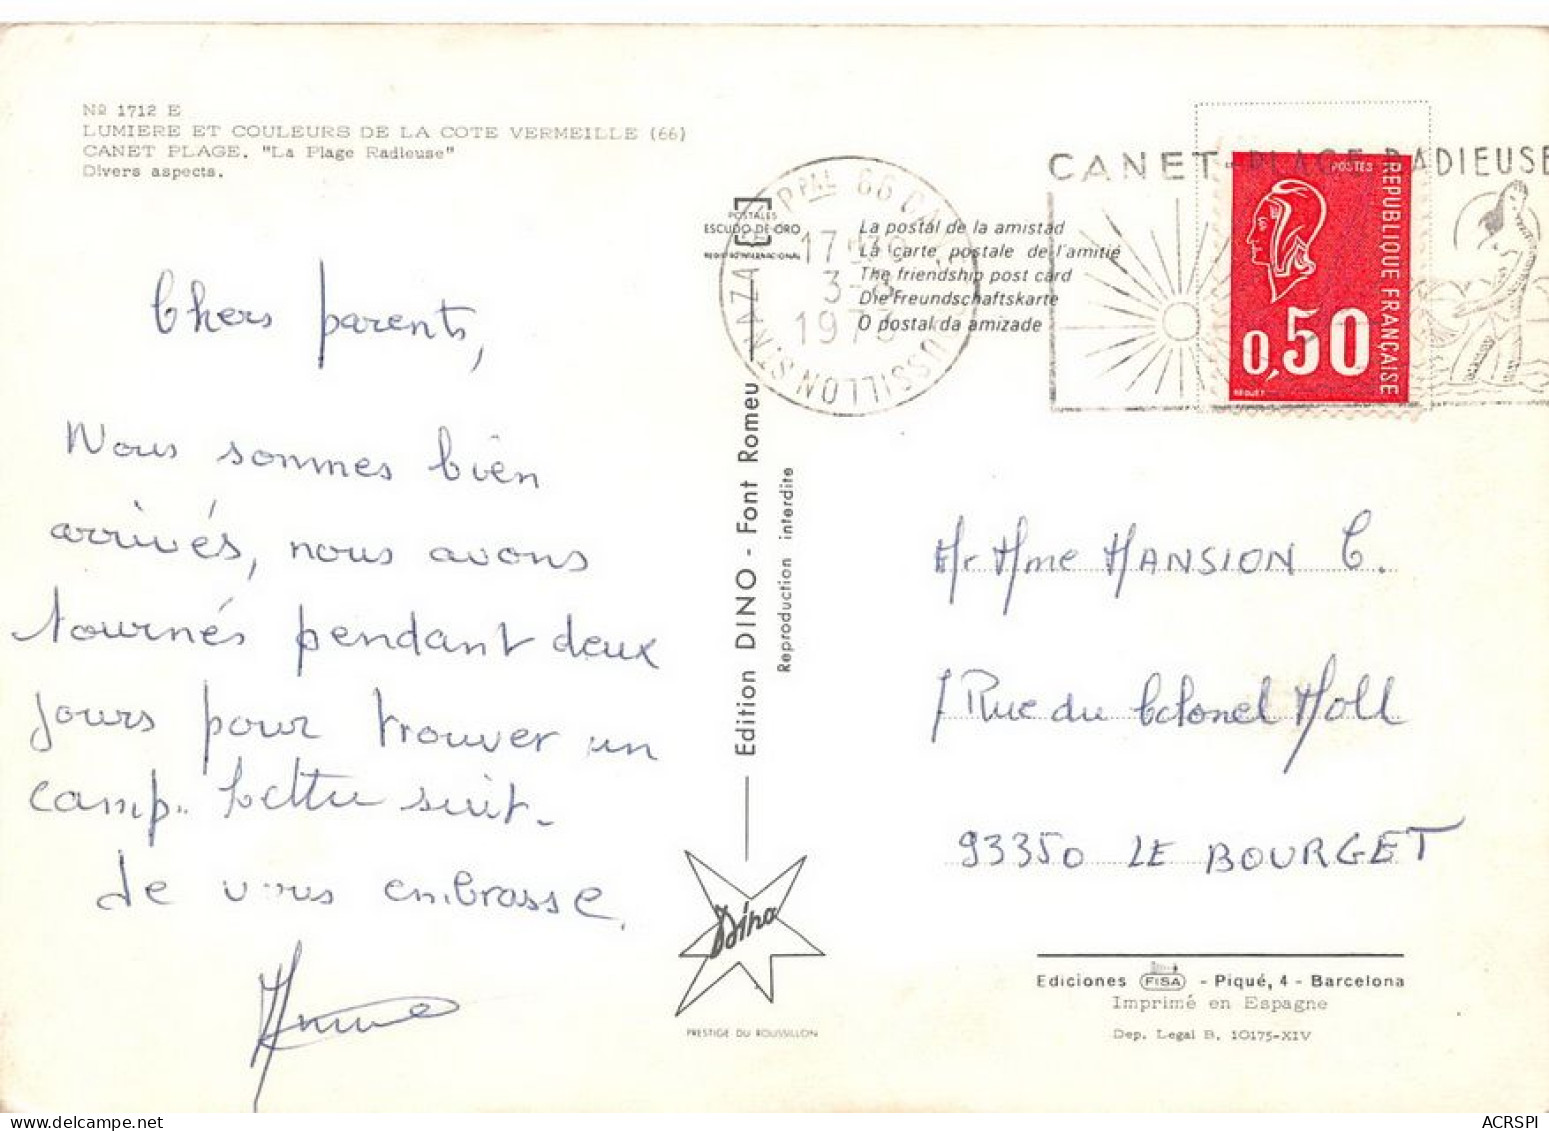 Nº 1712 E
LUMIERE ET COULEURS DE LA COTE VERMEILLE (66)
CANET PLAGE. "La Plage Radieuse"
Divers aspects.
Chers parents,
Nous sommes bien
arrivés, nous avons
tournés pendant deux
jours pour trouver un
camp. lettre suit.
de vous embrasse.
POSTALES
ESCUDO DE ORO
REGISTRO INTERNACIONAL
La postal de la amistad
La carte postale de l'amitié
The friendship post card
Die Freundschaftskarte
O postal da amizade
Edition DINO - Font Romeu
Reproduction interdite
Dino
PRESTIGE DU ROUSSILLON
PPAL 66
17 H
3-8
1973
ROUSSILLON ST. NAZAIRE
CANET-PLAGE RADIEUSE
POSTES
REPUBLIQUE FRANÇAISE
0,50
BEQUET
Mr Mme MANSION C.
7 Rue du Colonel Moll
93350 LE BOURGET
Ediciones FISA - Piqué, 4 - Barcelona
Imprimé en Espagne
Dep. Legal B. 10175-XIV
ACRSPI